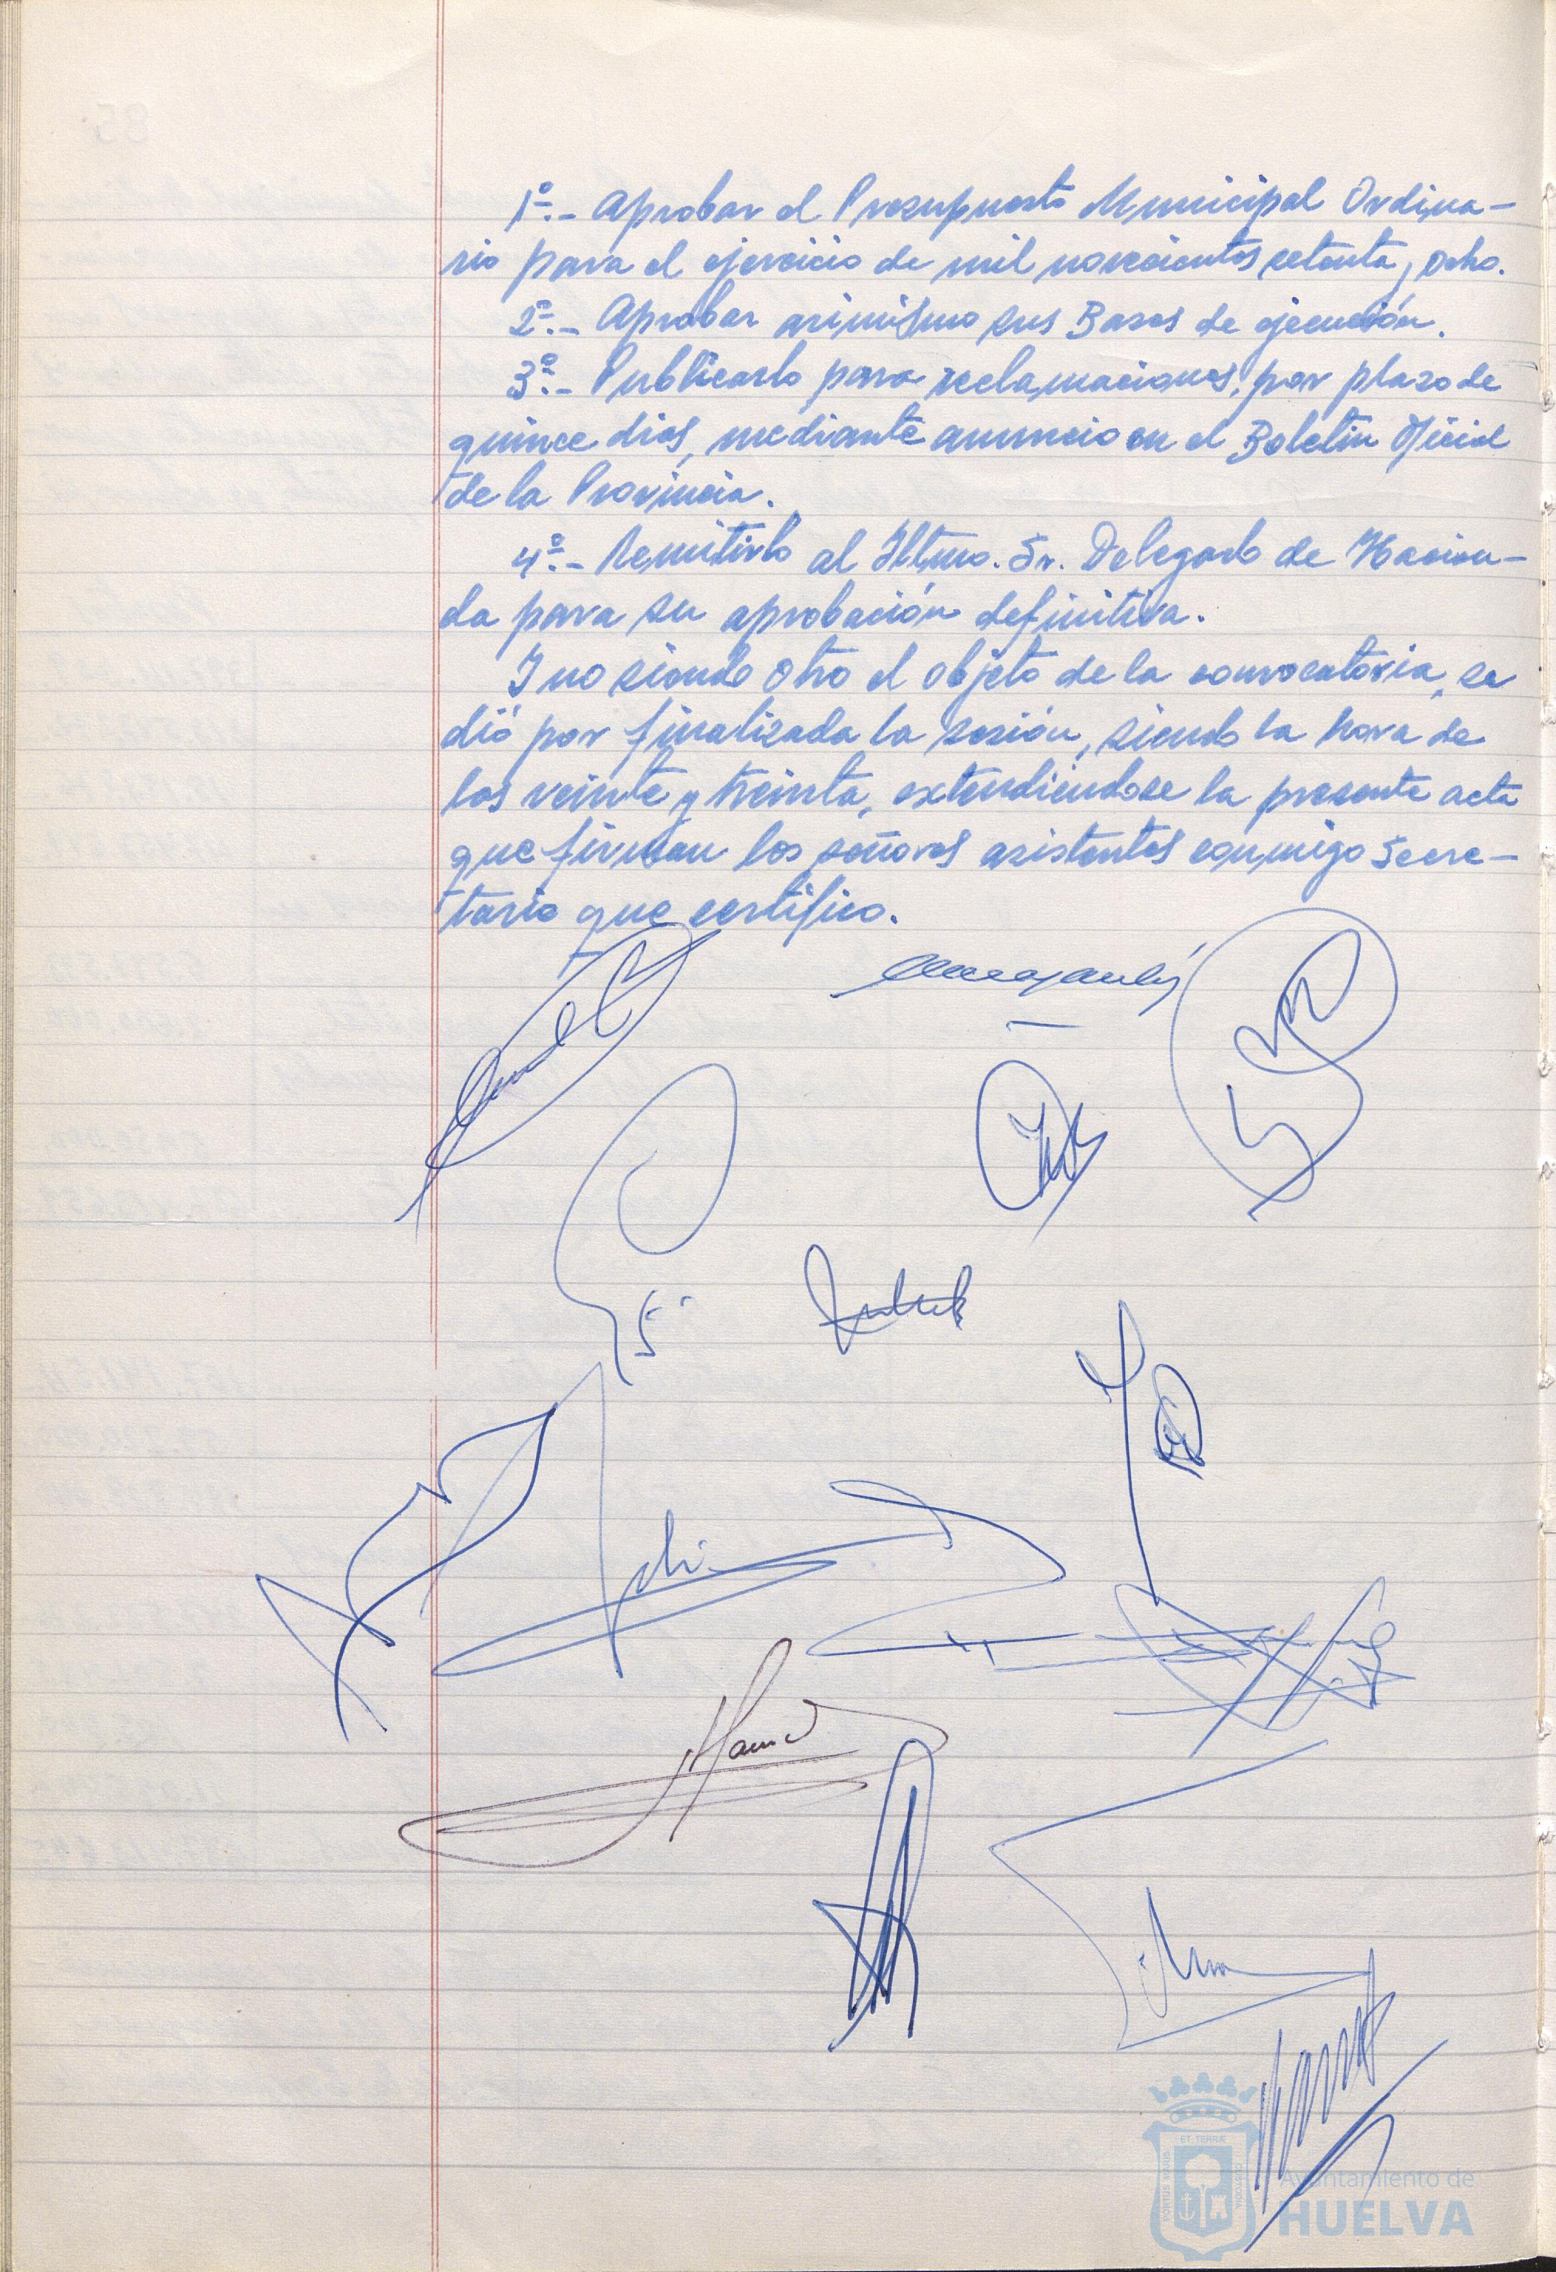 1º.- Aprobar el Presupuesto Municipal Ordina-
rio para el ejercicio de mil novecientos setenta y ocho.
2º.- Aprobar asimismo sus Bases de ejecución.
3º.- Publicarlo para reclamaciones, por plazo de
quince días, mediante anuncio en el Boletín Oficial
de la Provincia.
4º.- Remitirlo al Iltmo. Sr. Delegado de Hacien-
da para su aprobación definitiva.
Y no siendo otro el objeto de la convocatoria, se
dió por finalizada la sesión, siendo la hora de
las veinte y treinta, extendiéndose la presente acta
que firman los señores asistentes conmigo Secre-
tario que certifico.
ET TERRÆ
PORTUS MARIS
CUSTODIA
Ayuntamiento de
HUELVA